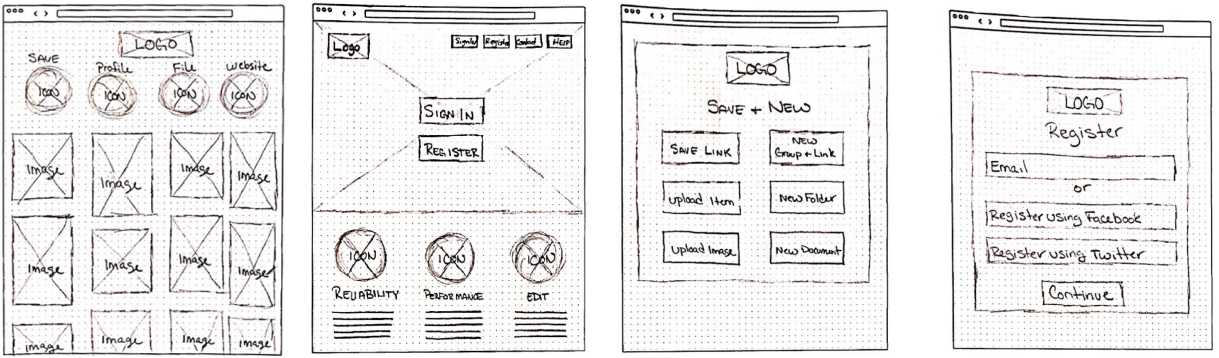 LOGO
SAVE
Profile
File
Website
ICON
ICON
ICON
ICON
Image
Image
Image
Image
Image
Image
Image
Image
Image
Image
Image
Image
Logo
Sign In
Register
Contact
HELP
SIGN IN
REGISTER
ICON
ICON
ICON
RELIABILITY
PERFORMANCE
EDIT
LOGO
SAVE + NEW
SAVE LINK
NEW
Group + Link
Upload Item
New Folder
Upload Image
New Document
LOGO
Register
Email
or
Register using Facebook
Register using Twitter
Continue